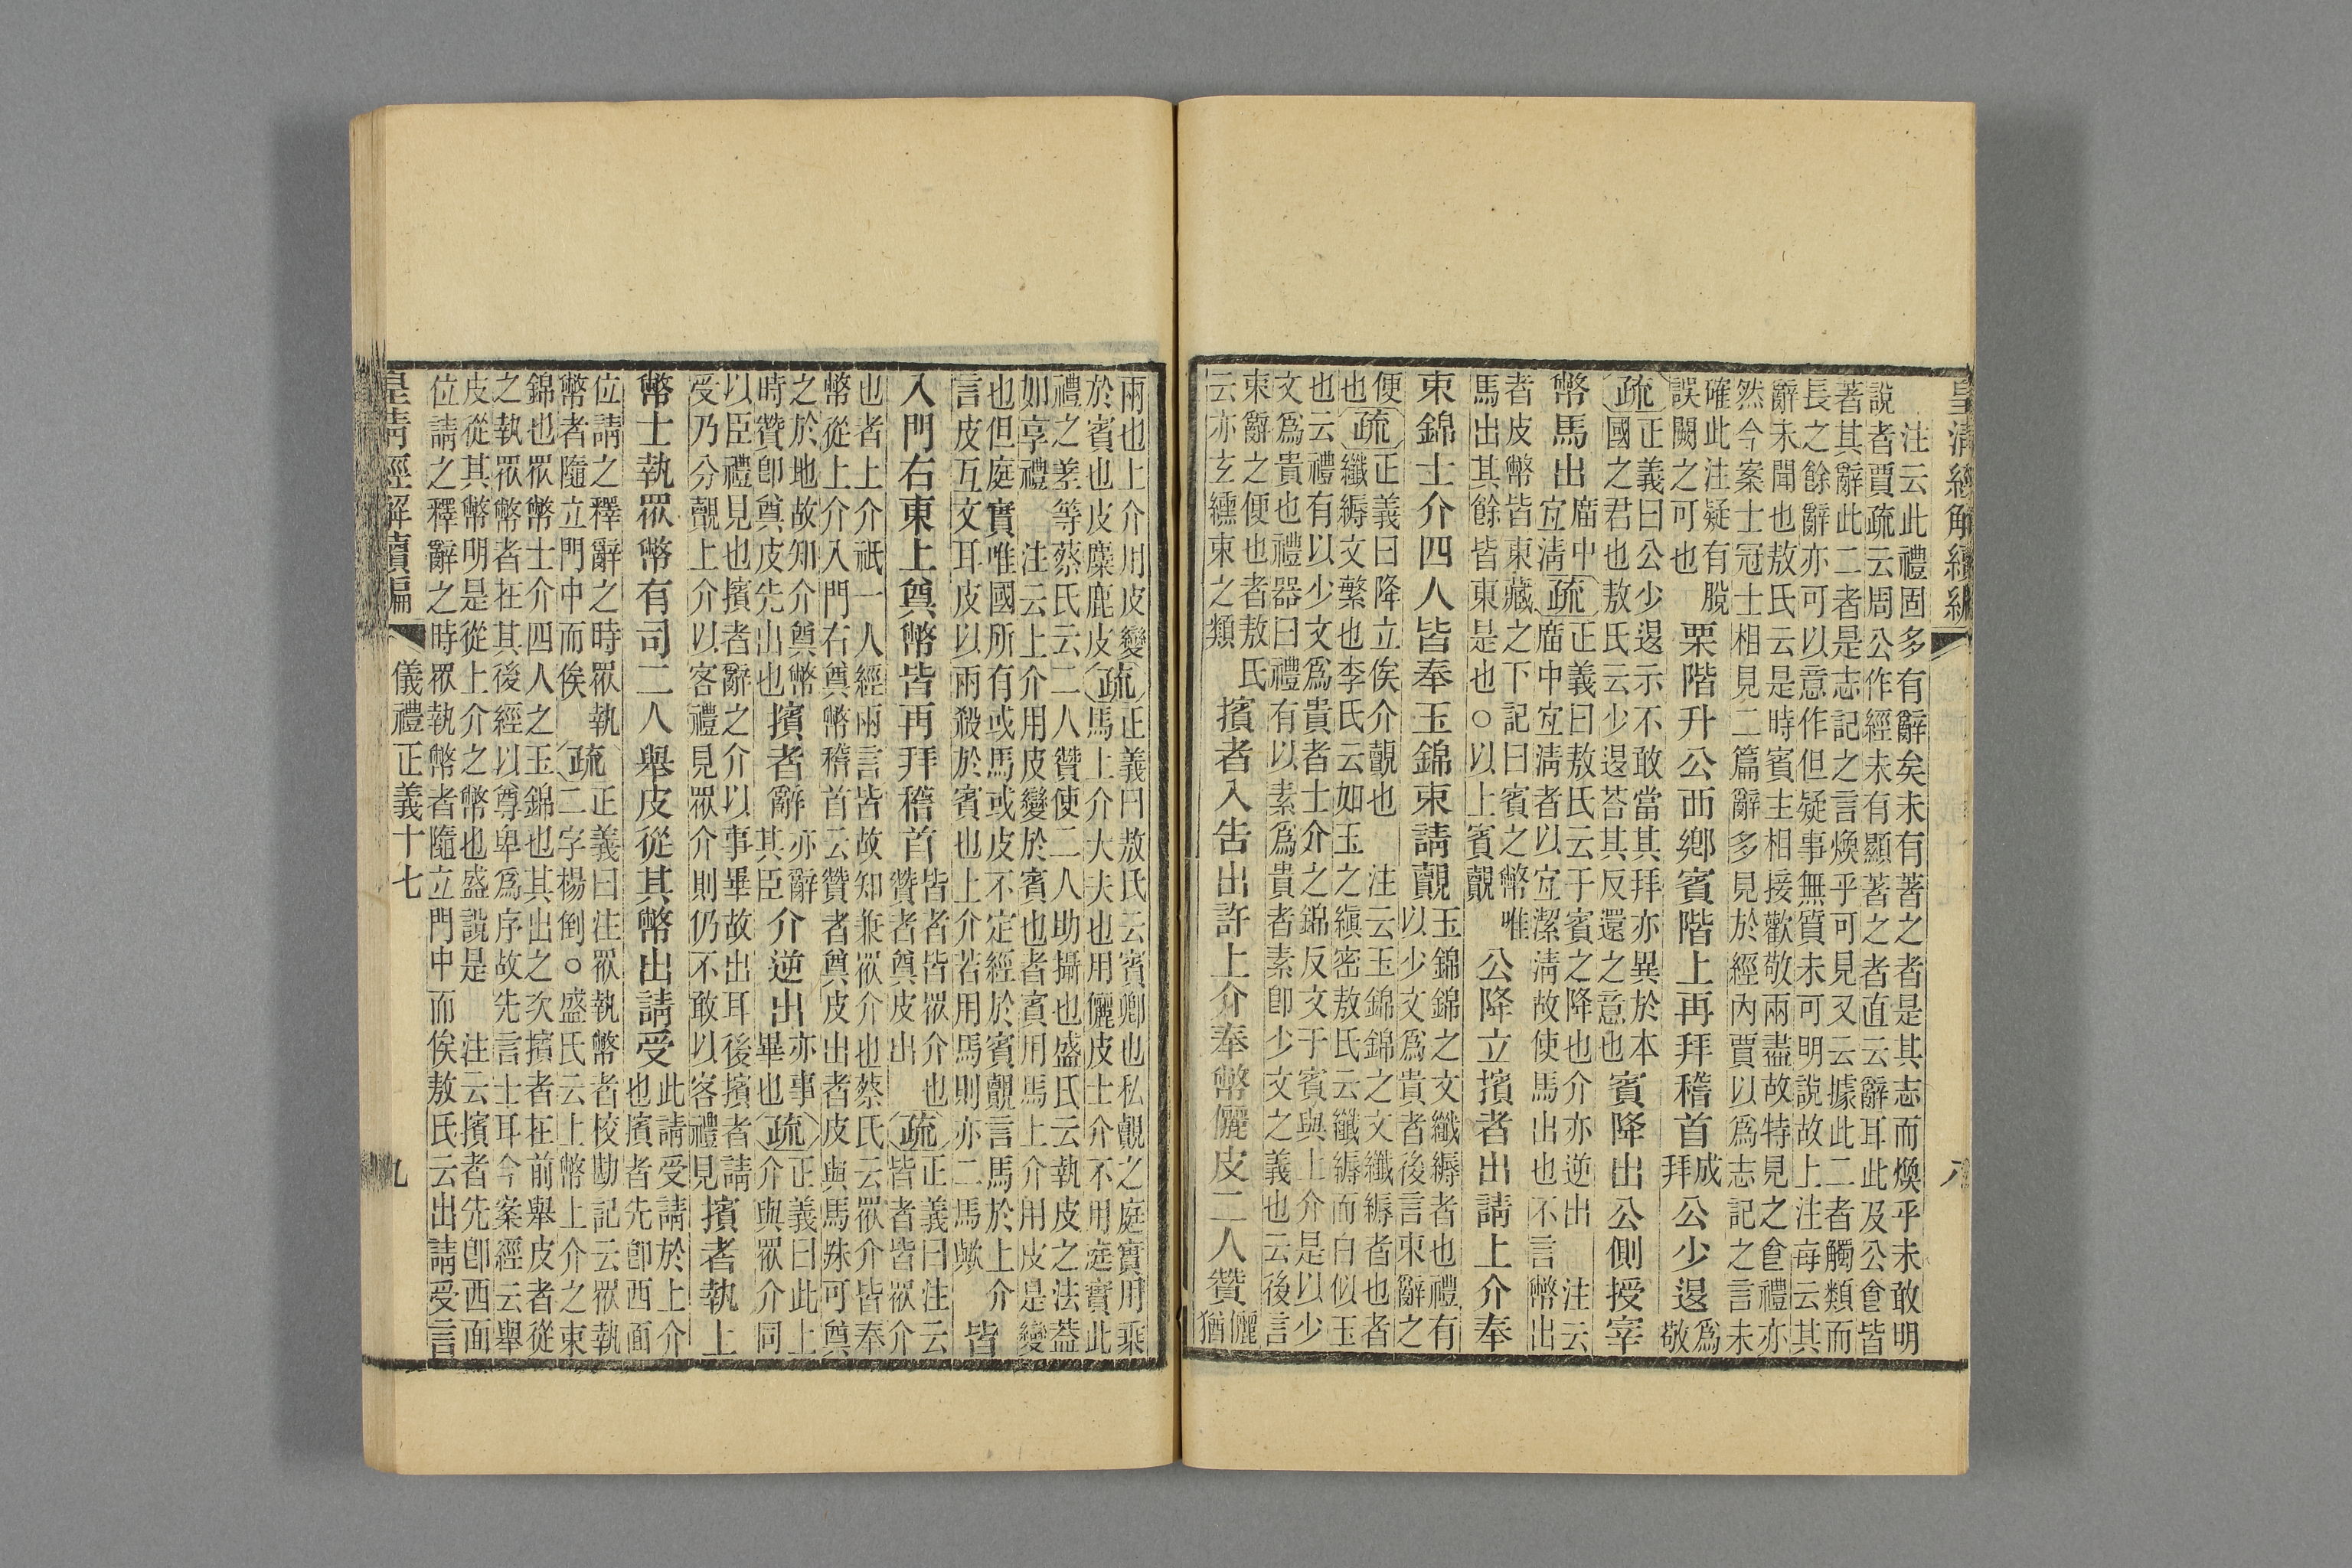 皇清經解續編 八
注云此禮固多有辭矣未有著之者是其志而煥乎未敢明
說者賈疏云周公作經未有顯著之者直云辭耳此及公食皆
著其辭此二者是志記之言煥乎可見又云據此二者觸類而
長之餘辭亦可以意作但疑事無質未可明說故上注每云其
辭未聞也敖氏云是時賓主相接歡敬兩盡故特見之食禮亦
然今案士冠士相見二篇辭多見於經內賈以爲志記之言未
確此注疑有脫
誤闕之可也
栗階升公西鄉賓階上再拜稽首 成拜 公少退 爲敬
疏 正義曰公少退示不敢當其拜亦異於本
國之君也敖氏云少退荅其反還之意也
賓降出公側授宰
幣馬出 廟中宜清 疏 正義曰敖氏云于賓之降也介亦逆出 注云
廟中宜清者以宜潔清故使馬出也不言幣出
者皮幣皆東藏之下記曰賓之幣唯
馬出其餘皆東是也○以上賓覿
公降立擯者出請上介奉
束錦士介四人皆奉玉錦束請覿
玉錦錦之文纖縟者也禮有
以少文爲貴者後言束辭之
便也 疏 正義曰降立俟介覿也 注云玉錦錦之文纖縟者也者
纖縟文繁也李氏云如玉之縝密敖氏云纖縟而白似玉
也云禮有以少文爲貴者士介之錦反文于賓與上介是以少
文爲貴也禮器曰禮有以素爲貴者素即少文之義也云後言
束辭之便也者敖氏
云亦玄纁束之類
擯者入告出許上介奉幣儷皮二人贊 儷猶
兩也上介用皮變
於賓也皮麋鹿皮
疏 正義曰敖氏云賓卿也私覿之庭實用乘
馬上介大夫也用儷皮士介不用庭實此
禮之差等蔡氏云二人贊使二人助攝也盛氏云執皮之法蓋
如享禮 注云上介用皮變於賓也者賓用馬上介用皮是變
也但庭實唯國所有或馬或皮不定經於賓覿言馬於上介
言皮互文耳皮以兩殺於賓也上介若用馬則亦二馬歟
皆
入門右東上奠幣皆再拜稽首
皆者皆衆介也
贊者奠皮出
疏 正義曰注云
皆者皆衆介
也者上介祇一人經兩言皆故知兼衆介也蔡氏云衆介皆奉
幣從上介入門右奠幣稽首云贊者奠皮出者皮與馬殊可奠
之於地故知介奠幣
時贊即奠皮先出也
擯者辭 亦辭其臣 介逆出 亦事畢也 疏 正義曰此上
介與衆介同
以臣禮見也擯者辭之介以事畢故出耳後擯者請
受乃分覿上介以客禮見衆介則仍不敢以客禮見
擯者執上
幣士執衆幣有司二人舉皮從其幣出請受
此請受請於上介
也擯者先即西面
位請之釋辭之時衆執
幣者隨立門中而俟
疏 正義曰注衆執幣者校勘記云衆執
二字楊倒○盛氏云上幣上介之束
錦也衆幣士介四人之玉錦也其出之次擯者在前舉皮者從
之執衆幣者在其後經以尊卑爲序故先言士耳今案經云舉
皮從其幣明是從上介之幣也盛說是 注云擯者先即西面
位請之釋辭之時衆執幣者隨立門中而俟敖氏云出請受言
皇清經解續編 儀禮正義十七 九